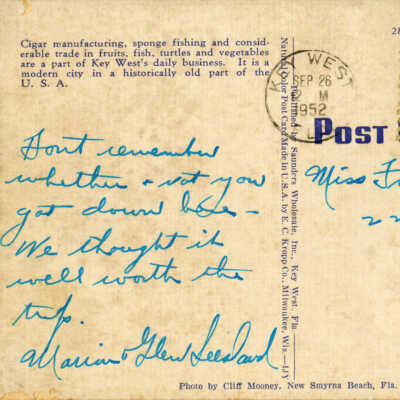 Cigar manufacturing, sponge fishing and consid-
erable trade in fruits, fish, turtles and vegetables
are a part of Key West's daily business. It is a
modern city in a historically old part of the
U. S. A.
Dont remember
whether or not you
got down here -
We thought it
well worth the
trip.
Marian & Glen
Natural Color Post Card Made in U.S.A. by E. C. Kropp Co., Milwaukee, Wis.
Published by Saunders Wholesale, Inc., Key West, Fla.
28
KEY WEST
SEP 26
2 M
1952
POST
Miss
22
Photo by Cliff Mooney, New Smyrna Beach, Fla.